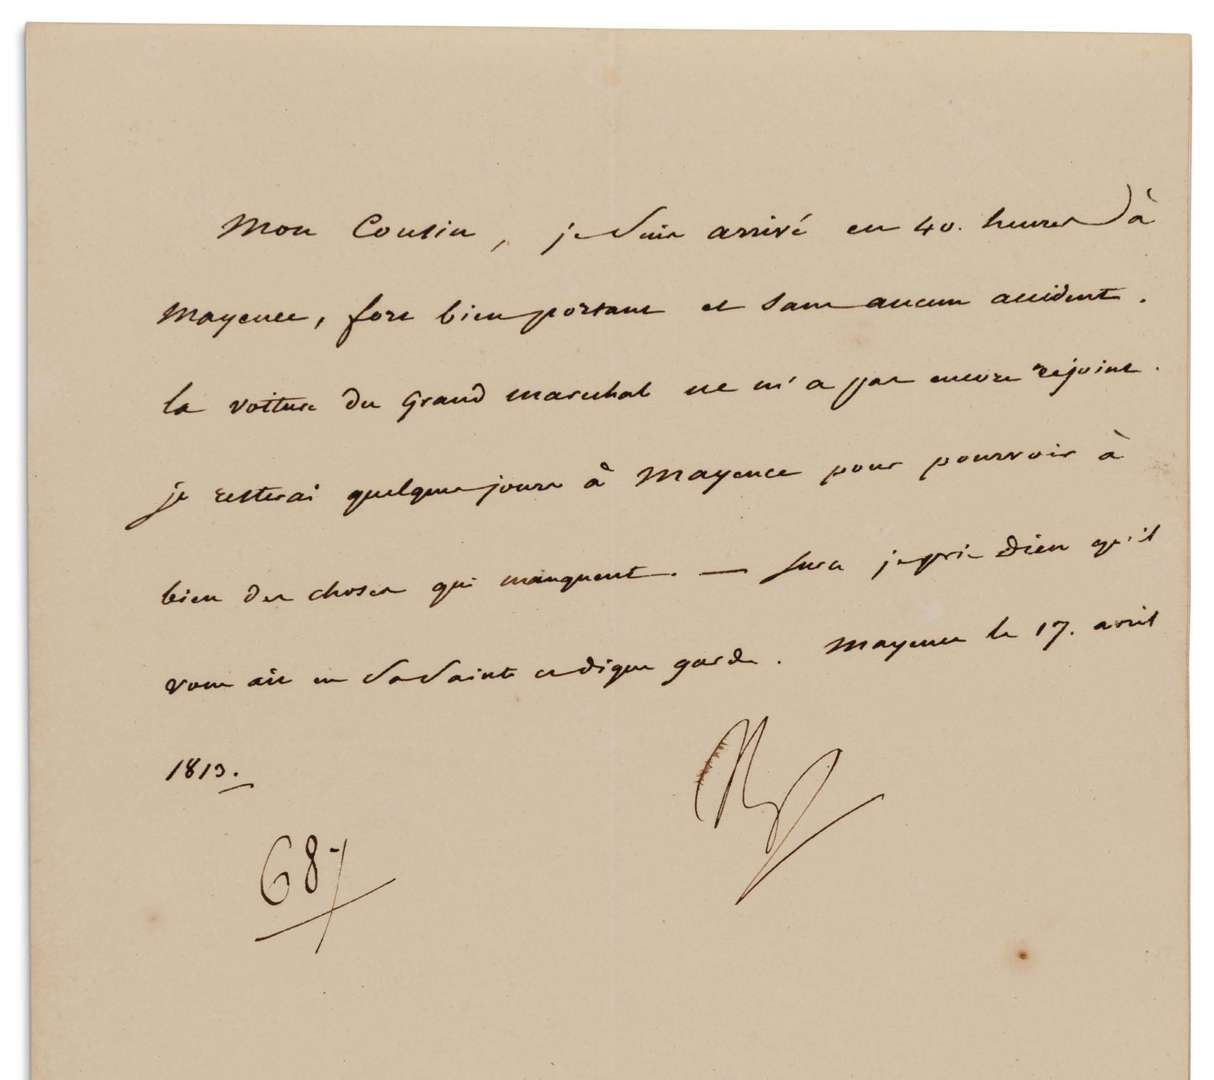 Mon Cousin, je suis arrivé en 40. heures à
Mayence, fort bien portant et sans aucun accident.
la voiture du Grand marechal ne m'a pas encore rejoint.
je resterai quelques jours à Mayence pour pourvoir à
bien des choses qui manquent. — Sur ce je prie Dieu qu'il
vous ait en Sa Sainte et digne garde. Mayence le 17. avril
1813.
687